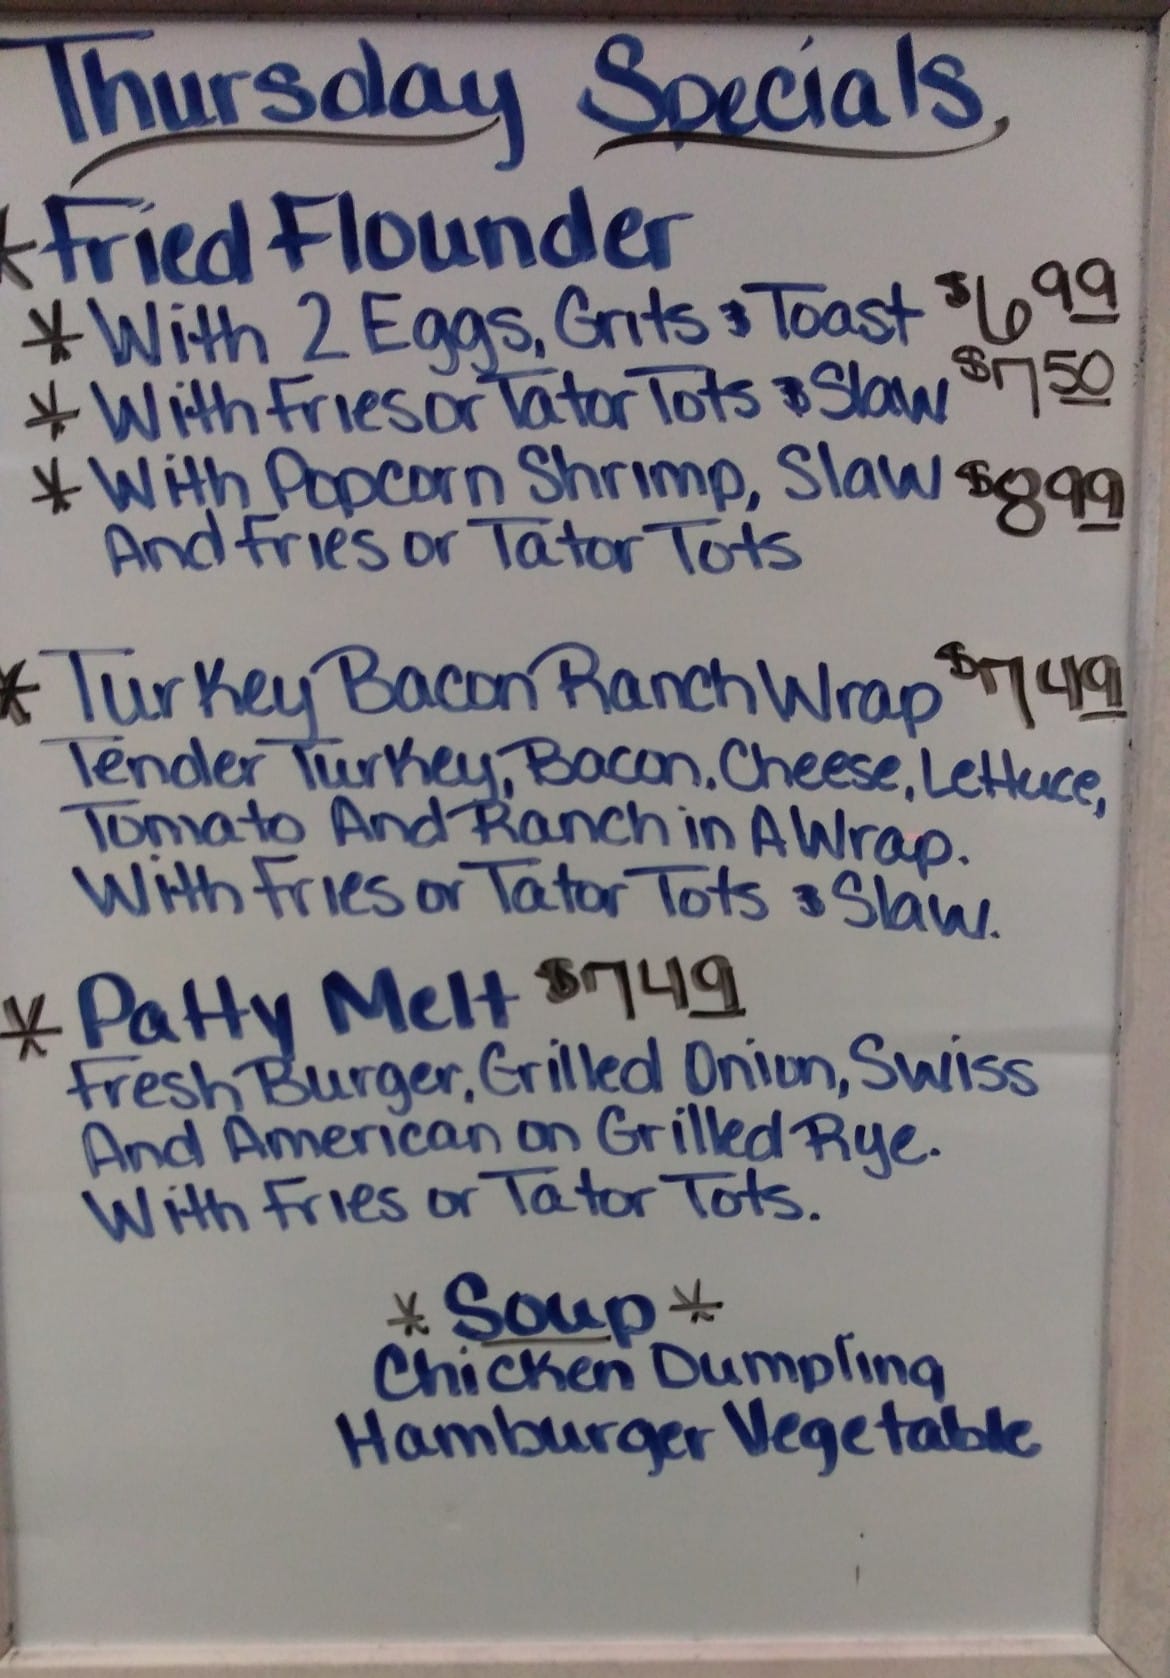 Thursday Specials
* Fried Flounder
* With 2 Eggs, Grits & Toast $6.99
* With Fries or Tator Tots & Slaw $7.50
* With Popcorn Shrimp, Slaw $8.99
And Fries or Tator Tots
* Turkey Bacon Ranch Wrap $7.49
Tender Turkey, Bacon, Cheese, Lettuce,
Tomato And Ranch in A Wrap.
With Fries or Tator Tots & Slaw.
* Patty Melt $7.49
Fresh Burger, Grilled Onion, Swiss
And American on Grilled Rye.
With Fries or Tator Tots.
* Soup *
Chicken Dumpling
Hamburger Vegetable